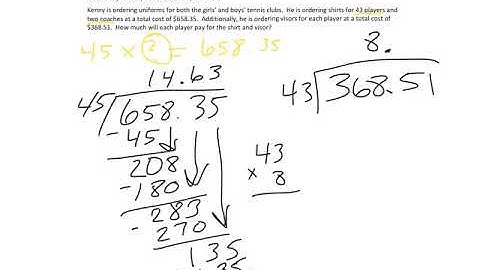 Kenny is ordering uniforms for both the girls' and boys' tennis clubs. He is ordering shirts for 43 players and
two coaches at a total cost of $658.35. Additionally, he is ordering visors for each player at a total cost of
$368.51. How much will each player pay for the shirt and visor?
45 × ? = 658.35
14.63
45 658.35
-45
208
-180
283
-270
135
8.
43 368.51
43
× 8